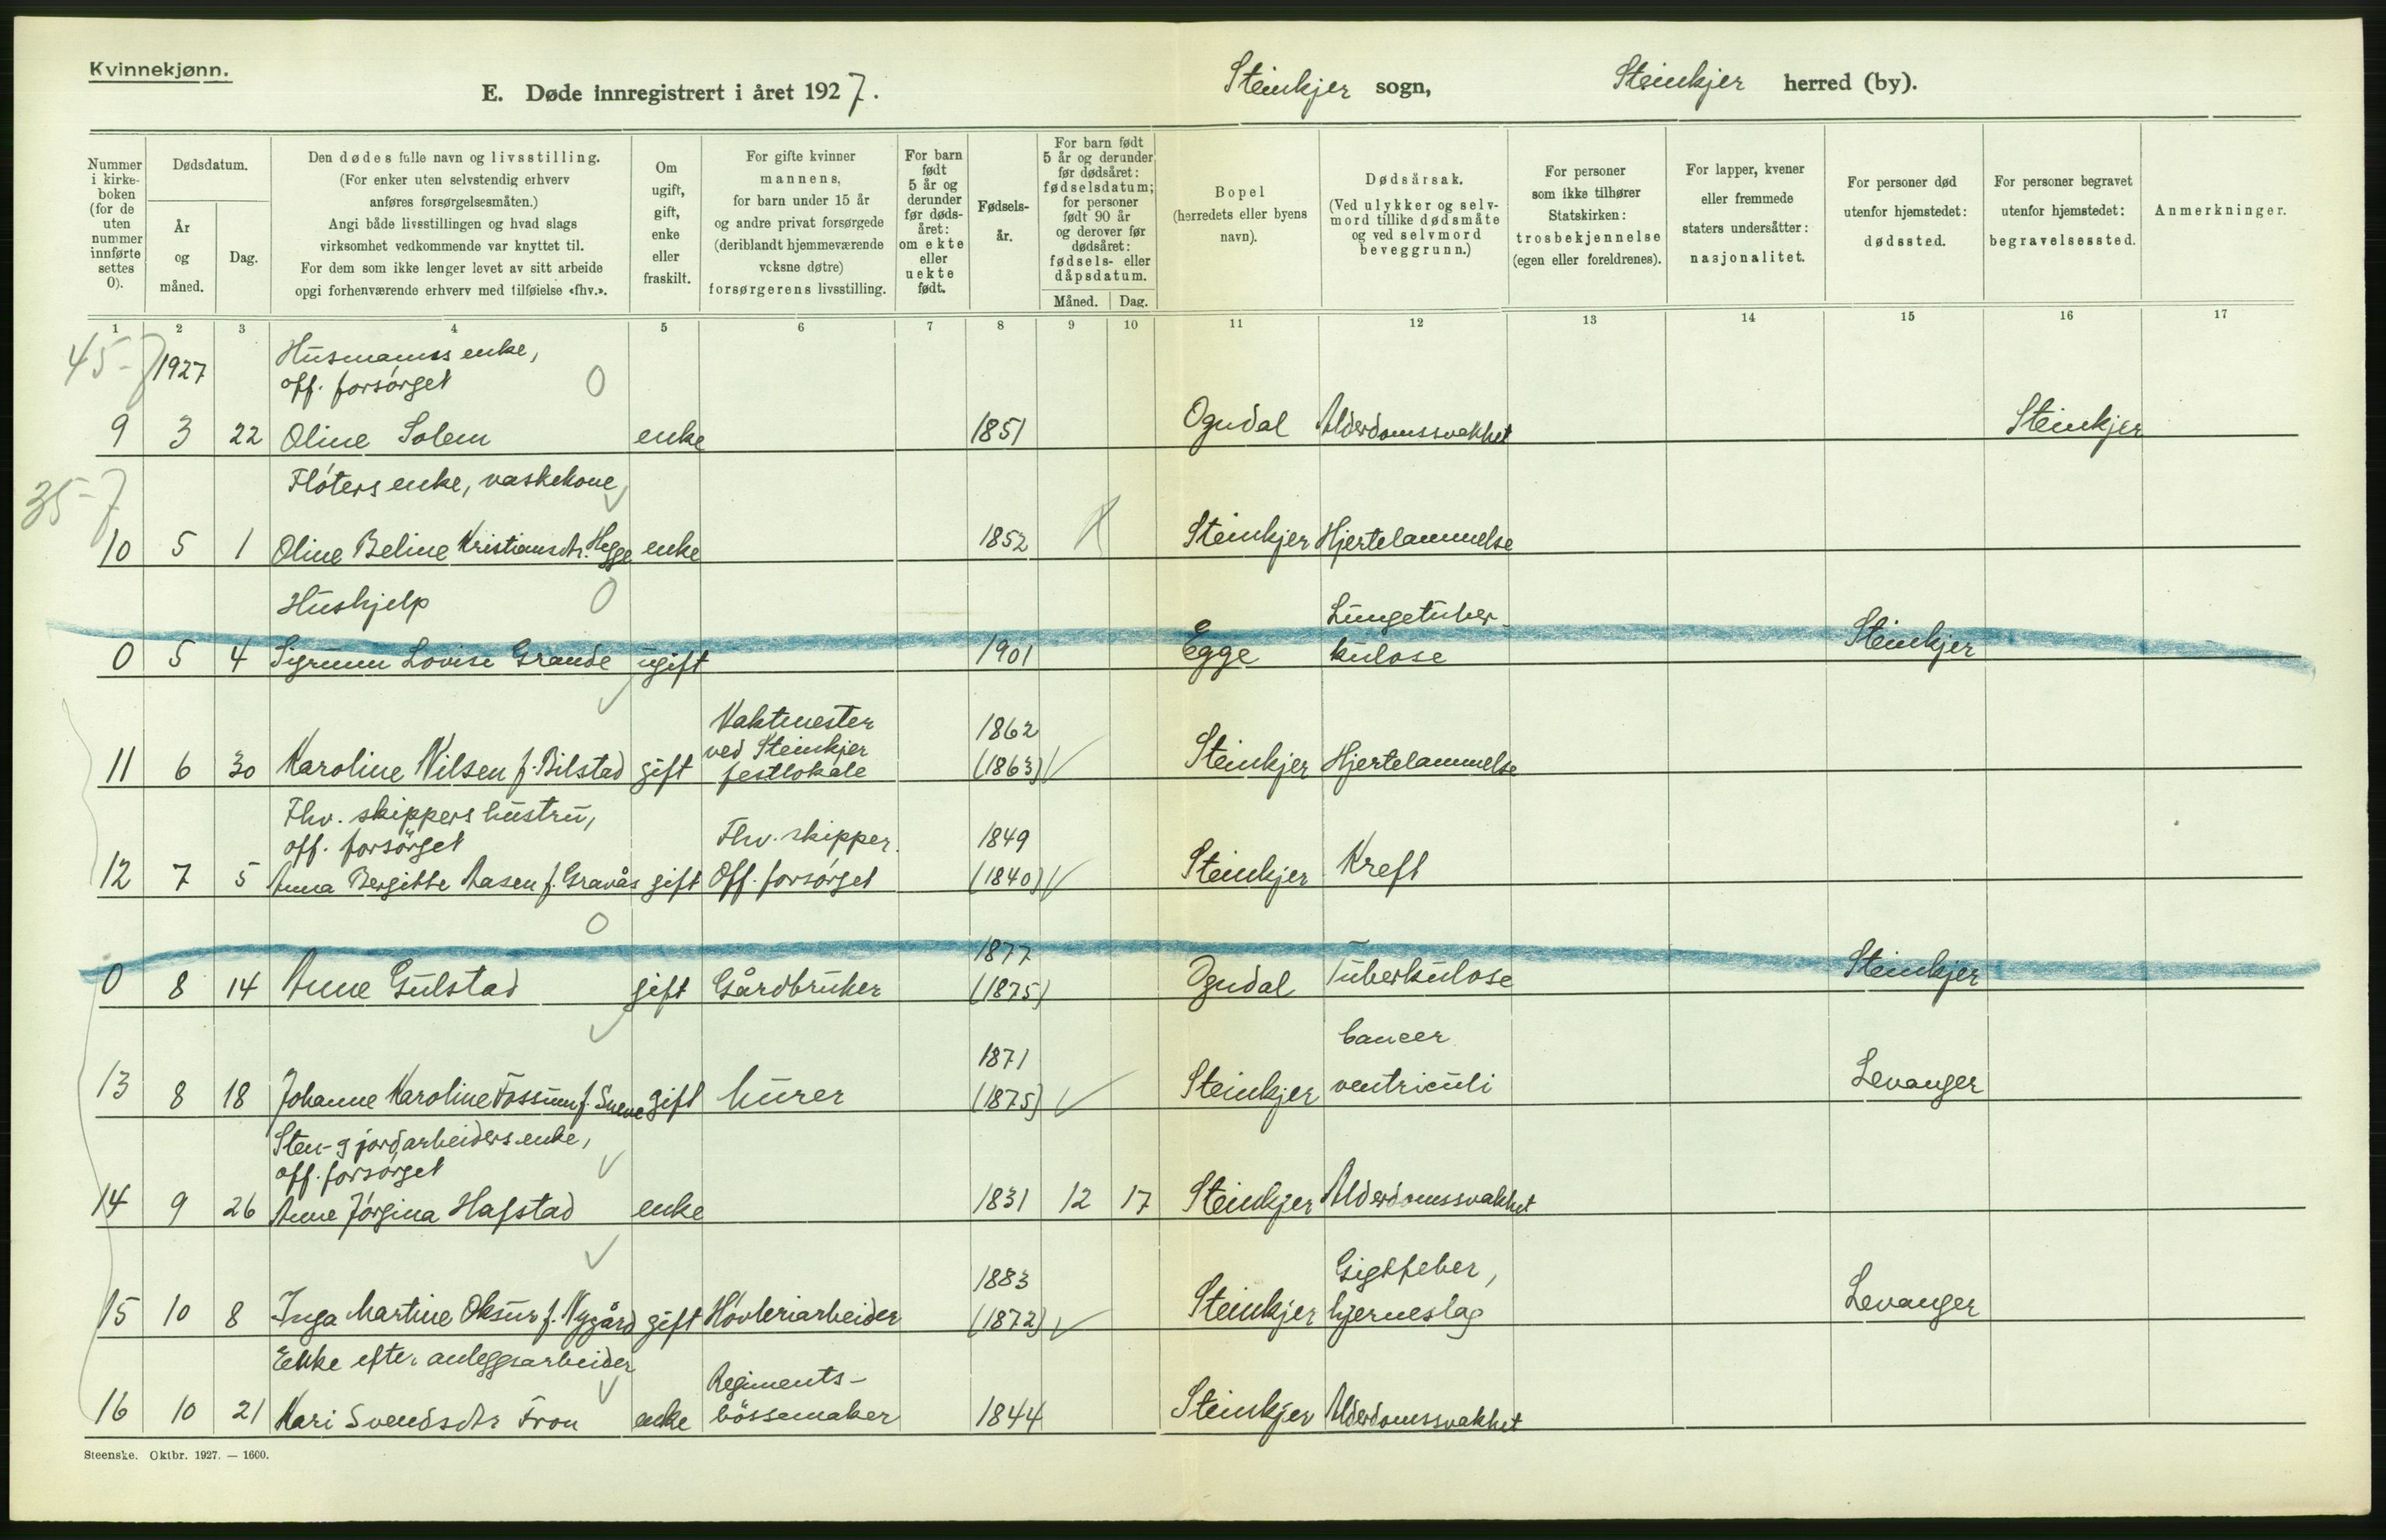 Kvinnekjønn.
E. Døde innregistrert i året 1927.
Steinkjer sogn, Steinkjer herred (by).
Nummer i kirke-boken (for de uten nummer innførte settes 0).
Dødsdatum.
År og måned.
Dag.
Den dødes fulle navn og livsstilling.
(For enker uten selvstendig erhverv
anføres forsørgelsesmåten.)
Angi både livsstillingen og hvad slags
virksomhet vedkommende var knyttet til.
For dem som ikke lenger levet av sitt arbeide
opgi forhenværende erhverv med tilføielse «fhv.».
Om ugift, gift, enke eller fraskilt.
For gifte kvinner
mannens,
for barn under 15 år
og andre privat forsørgede
(deriblandt hjemmeværende
voksne døtre)
forsørgerens livsstilling.
For barn født 5 år og derunder før døds-året: om ekte eller uekte født.
Fødsels-år.
For barn født
5 år og derunder
før dødsåret:
fødselsdatum;
for personer
født 90 år
og derover før
dødsåret:
fødsels- eller
dåpsdatum.
Måned. Dag.
Bopel
(herredets eller byens
navn).
Dødsårsak.
(Ved ulykker og selv-
mord tillike dødsmåte
og ved selvmord
beveggrunn.)
For personer
som ikke tilhører
Statskirken:
trosbekjennelse
(egen eller foreldrenes).
For lapper, kvener
eller fremmede
staters undersåtter:
nasjonalitet.
For personer død
utenfor hjemstedet:
dødssted.
For personer begravet
utenfor hjemstedet:
begravelsessted.
Anmerkninger.
1 2 3 4 5 6 7 8 9 10 11 12 13 14 15 16 17
45-7 1927 Husmanns enke,
off. forsørget 0
9 3 22 Oline Solem enke 1851 Ogndal Alderdomssvakhet Steinkjer
35-7 Fløters enke, vaskekone
10 5 1 Oline Beline Kristiansdtr. Hegge enke 1852 Steinkjer Hjertelammelse
Hushjelp 0 Lungetuber-
0 5 4 Sigrunn Lovise Grande ugift 1901 Egge kulose Steinkjer
Vaktmester 1862
ved Steinkjer
11 6 30 Karoline Nilsen f. Bilstad gift festlokale (1863) Steinkjer Hjertelammelse
Fhv. skippers hustru,
off. forsørget Fhv. skipper. 1849
12 7 5 Anna Bergitte Aasen f. Gravås gift Off. forsørget (1840) Steinkjer Kreft
0 1877
0 8 14 Anne Gulstad gift Gårdbruker (1875) Ogndal Tuberkulose Steinkjer
1871 Cancer
13 8 18 Johanne Karoline Fossum f. Sneve gift Murer (1875) Steinkjer ventriculi Levanger
Sten- g jordarbeiders enke,
off. forsørget
14 9 26 Anne Jørgina Hafstad enke 1831 12 17 Steinkjer Alderdomssvakhet
1883 Gigtfeber,
15 10 8 Inga Martine Oksur f. Nygård gift Høvleriarbeider (1872) Steinkjer hjerneslag Levanger
Enke efter anleggsarbeider Regiments-
16 10 21 Kari Svendsdtr Fron enke bössemaker 1844 Steinkjer Alderdomssvakhet
Steenske. Oktbr. 1927. — 1600.